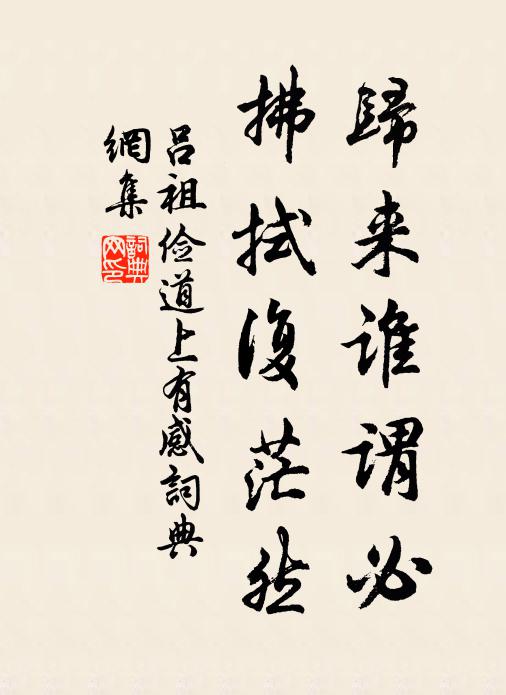 歸来誰謂必
拂拭復茫然
吕祖俭道上有感詞典
網集
詞典
网印